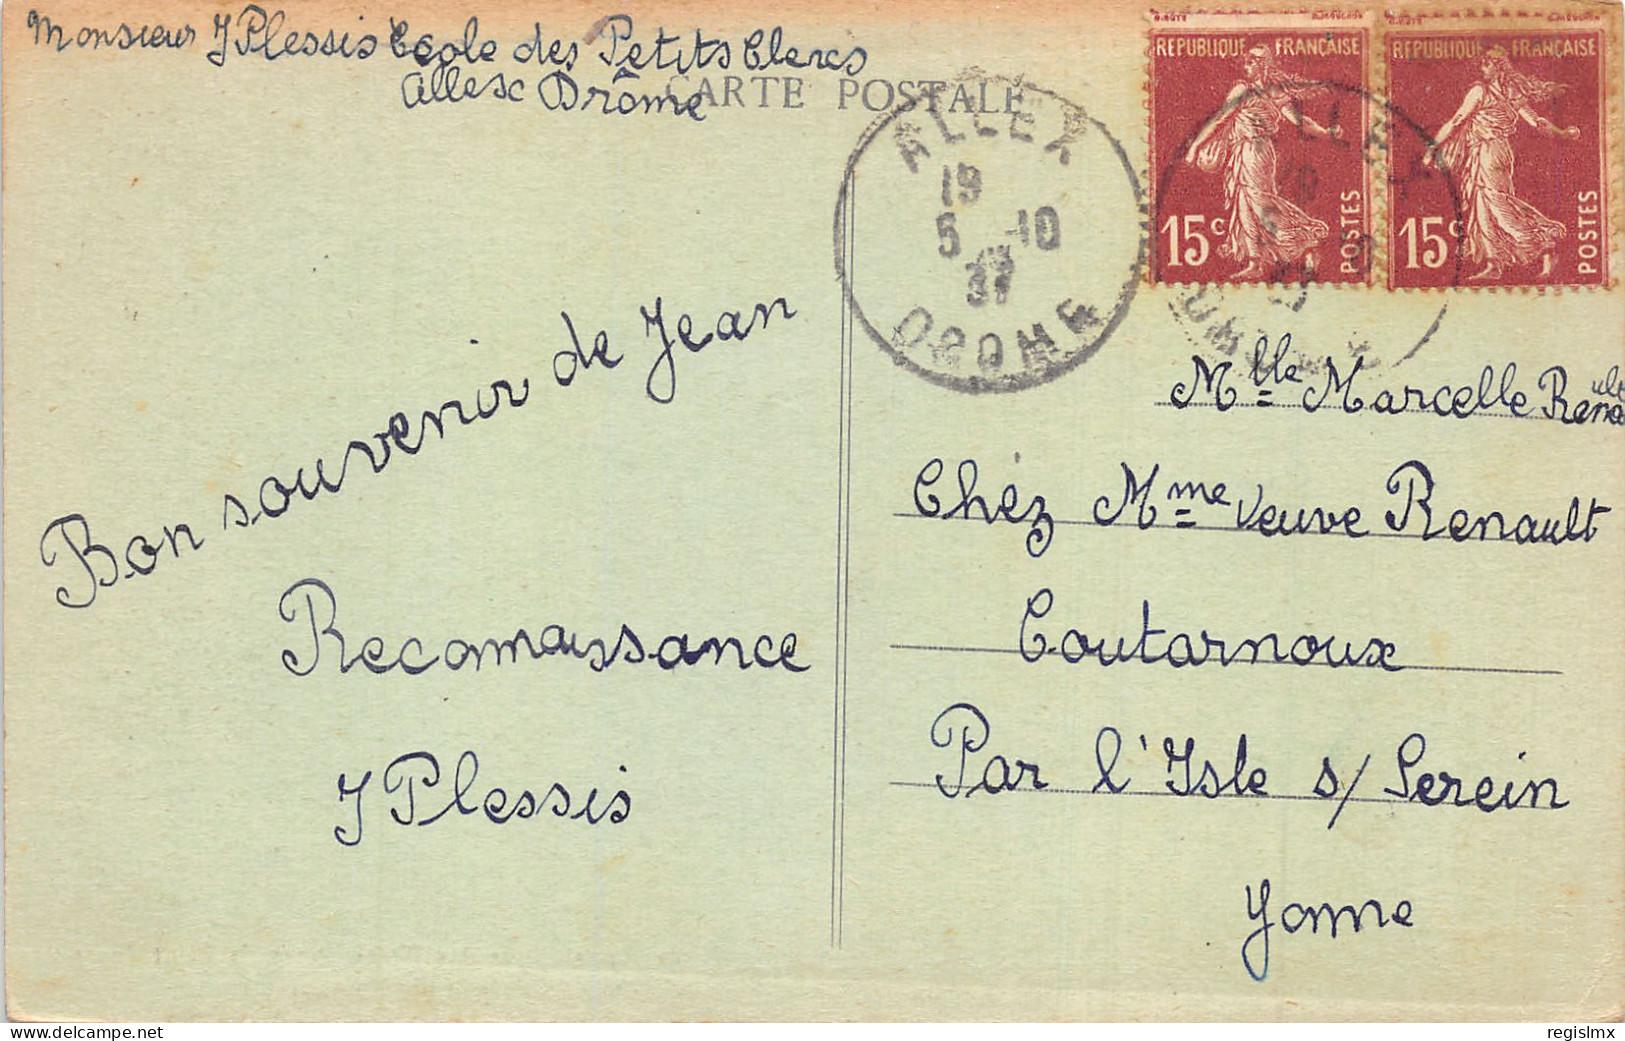 Monsieur J Plessis Ecole des Petits Clercs
Allex Drôme
CARTE POSTALE
ALLEX
19
5 -10
37
DROME
REPUBLIQUE FRANÇAISE
15c POSTES
REPUBLIQUE FRANÇAISE
15c POSTES
Bon souvenir de Jean
Reconnaissance
J Plessis
Mlle Marcelle Renault
Chéz Mme Veuve Renault
Coutarnoux
Par l'Isle s/ Serein
Yonne
delcampe.net
regislmx